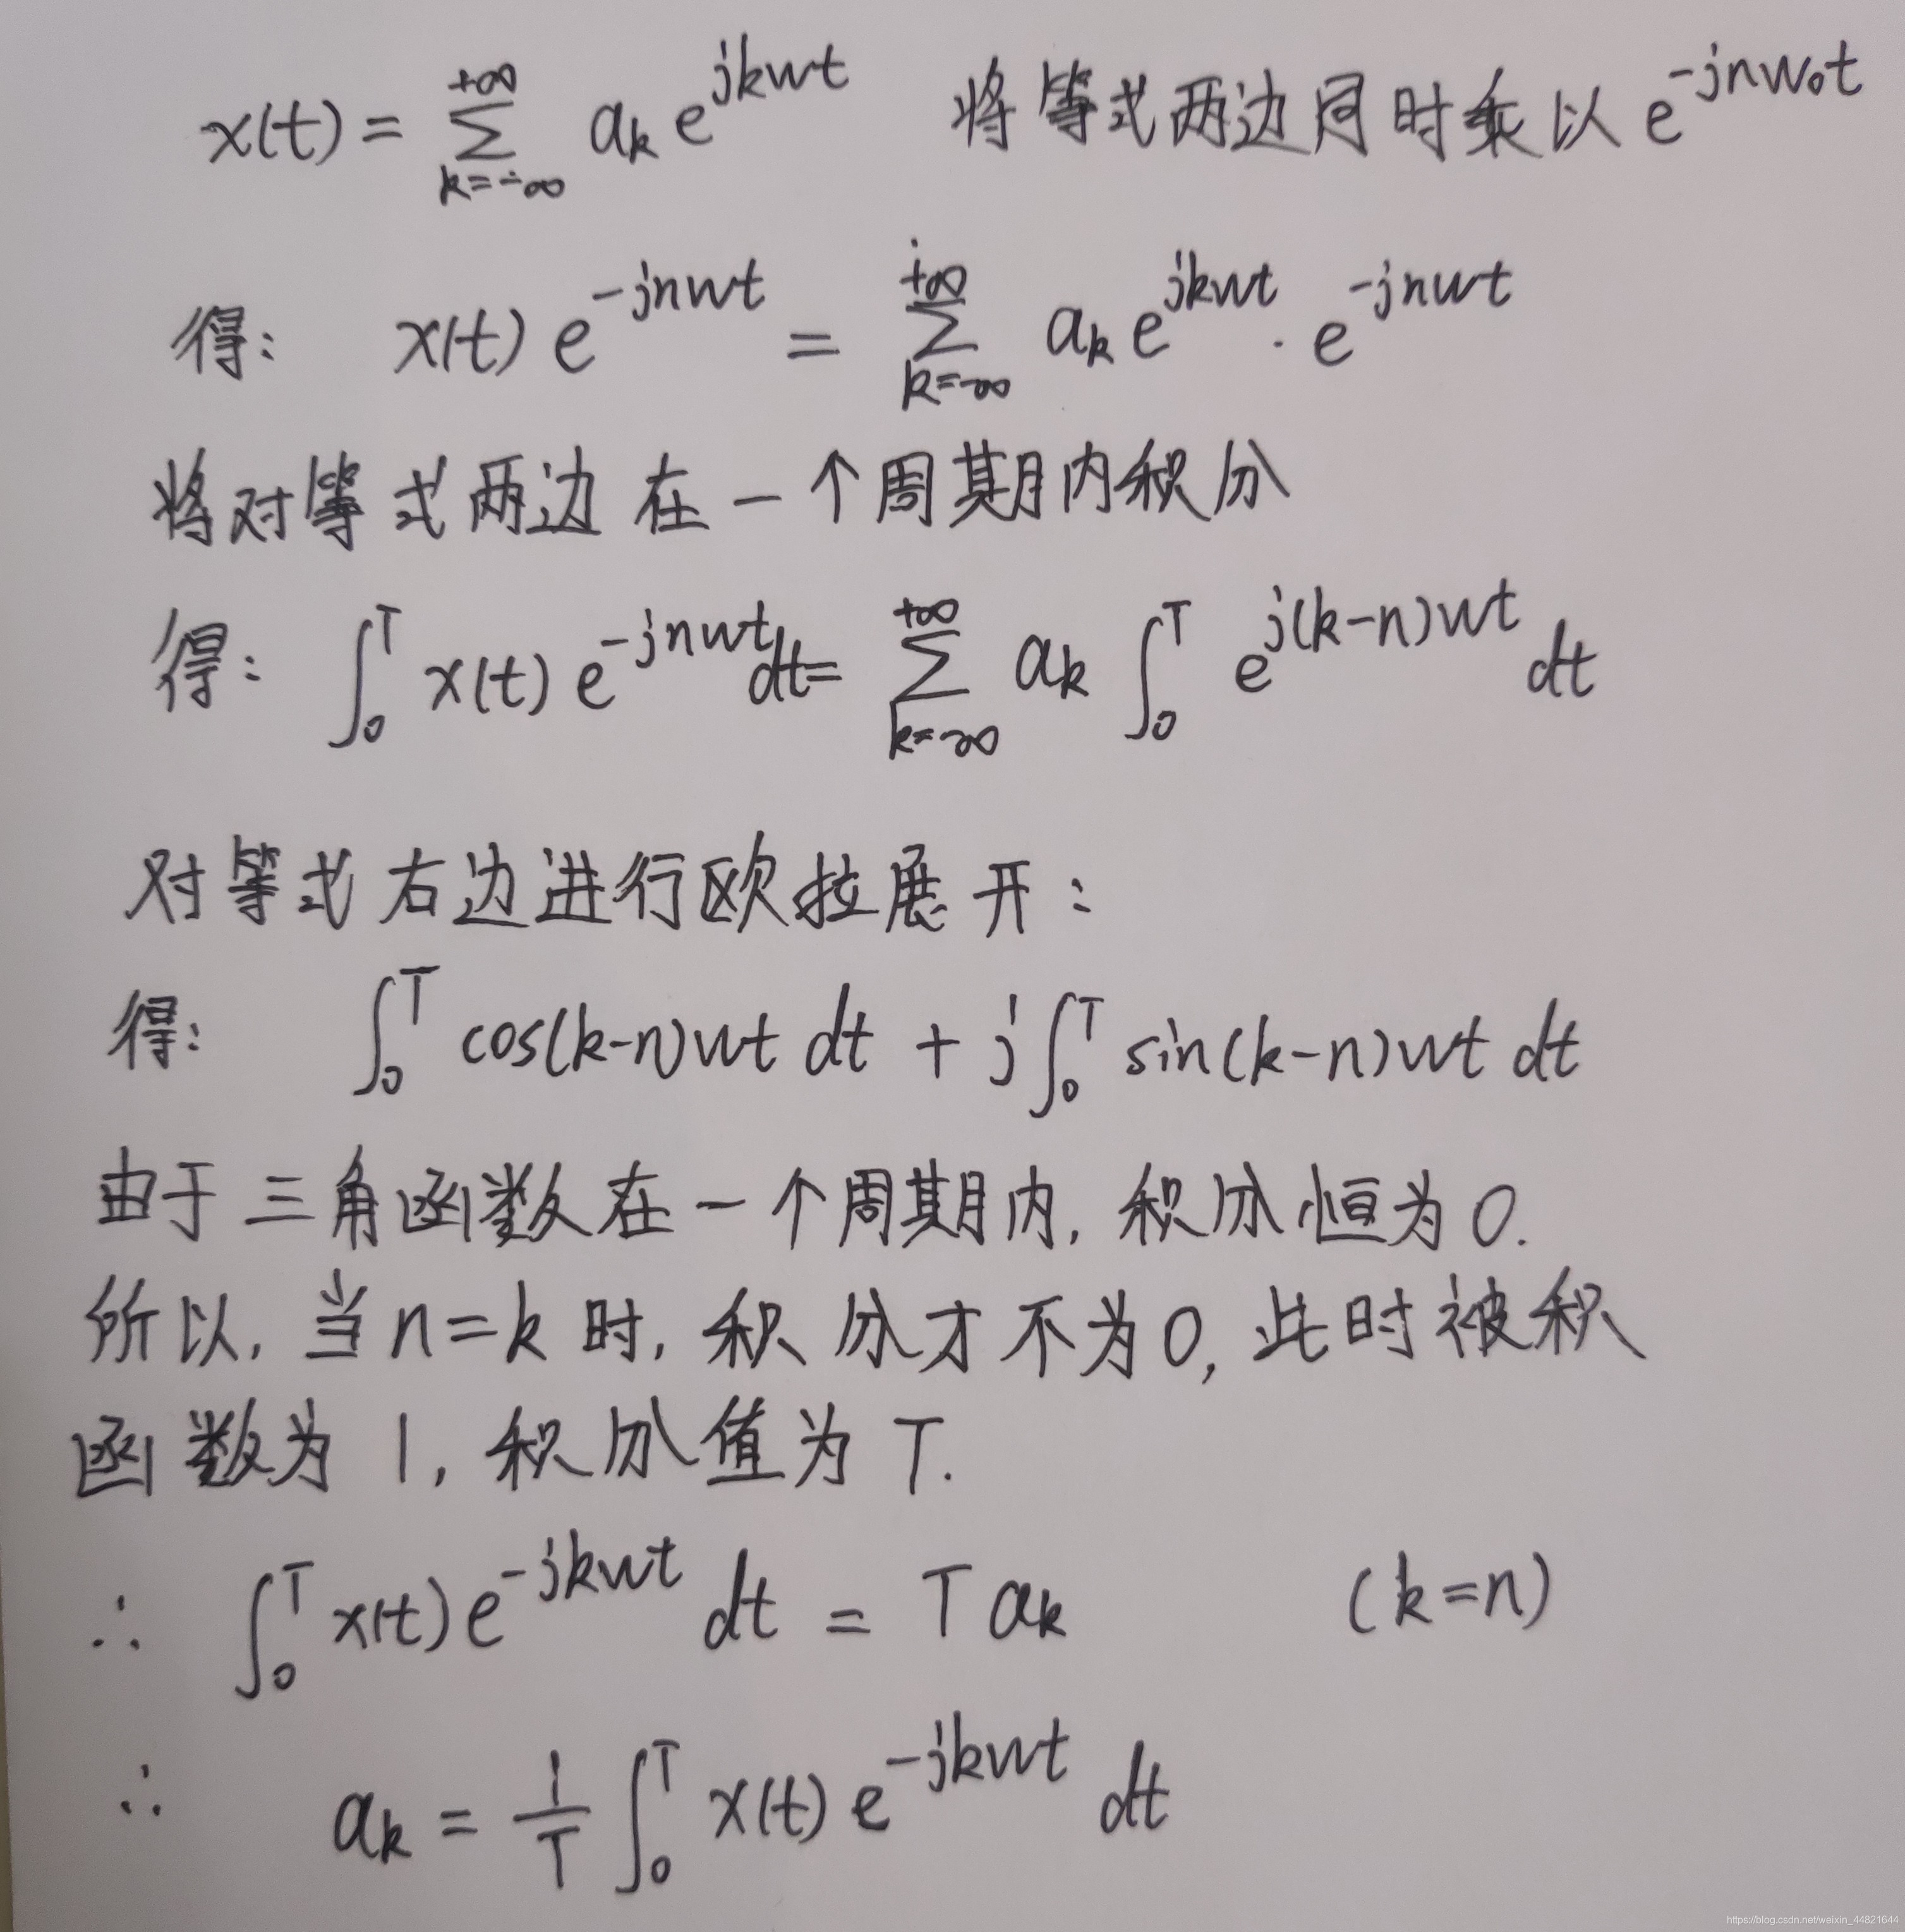 x(t) = \sum_{k=-\infty}^{+\infty} a_k e^{jkwt} 将等式两边同时乘以 e^{-jnw_0t}
得: x(t) e^{-jnwt} = \sum_{k=-\infty}^{+\infty} a_k e^{jkwt} · e^{-jnwt}
将对等式两边在一个周期内积分
得: \int_0^T x(t) e^{-jnwt} dt = \sum_{k=-\infty}^{+\infty} a_k \int_0^T e^{j(k-n)wt} dt
对等式右边进行欧拉展开:
得: \int_0^T cos(k-n)wt dt + j\int_0^T sin(k-n)wt dt
由于三角函数在一个周期内, 积分恒为0.
所以, 当n=k时, 积分才不为0, 此时被积
函数为1, 积分值为T.
∴ \int_0^T x(t) e^{-jkwt} dt = T a_k (k=n)
∴ a_k = \frac{1}{T} \int_0^T x(t) e^{-jkwt} dt
https://blog.csdn.net/weixin_44821644